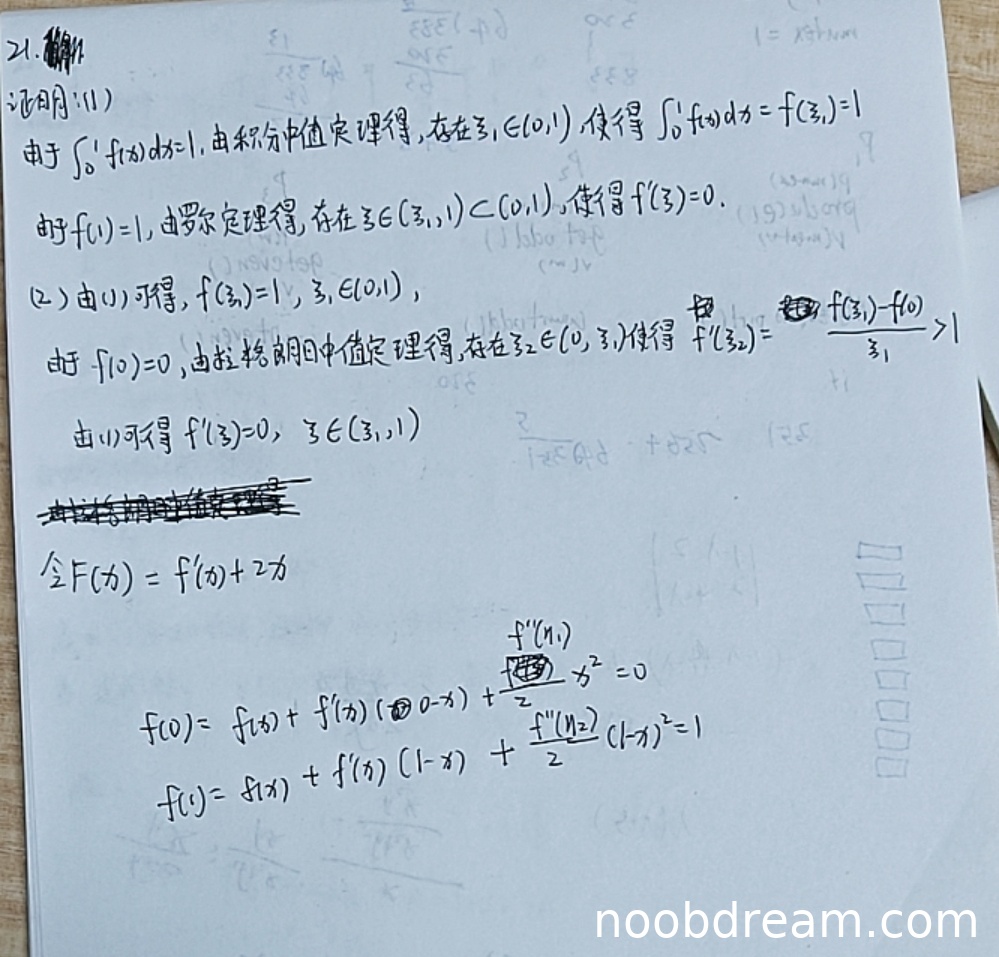 21.
证明:(1)
由于 ∫₀¹ f(x)dx=1,由积分中值定理得,存在ξ₁∈(0,1),使得 ∫₀¹ f(x)dx = f(ξ₁)=1
由于f(1)=1,由罗尔定理得,存在ξ∈(ξ₁,1)⊂(0,1),使得f'(ξ)=0.
(2)由(1)可得,f(ξ₁)=1,ξ₁∈(0,1),
由于 f(0)=0,由拉格朗日中值定理得,存在ξ₂∈(0,ξ₁)使得 f'(ξ₂)= (f(ξ₁)-f(0))/ξ₁ >1
由(1)可得 f'(ξ)=0, ξ∈(ξ₁,1)
令F(x) = f'(x)+2x
f(0)= f(x)+ f'(x)(0-x) + f''(η₁)/2 x² =0
f(1)= f(x) + f'(x)(1-x) + f''(η₂)/2 (1-x)²=1
noobdream.com